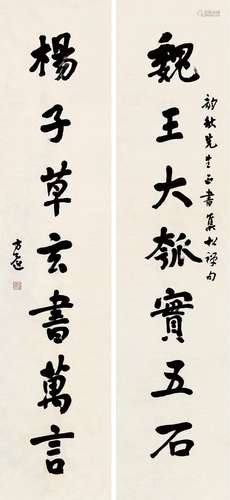 魏王大瓠實五石
韵秋先生正書集松禪句
楊子草玄書萬言